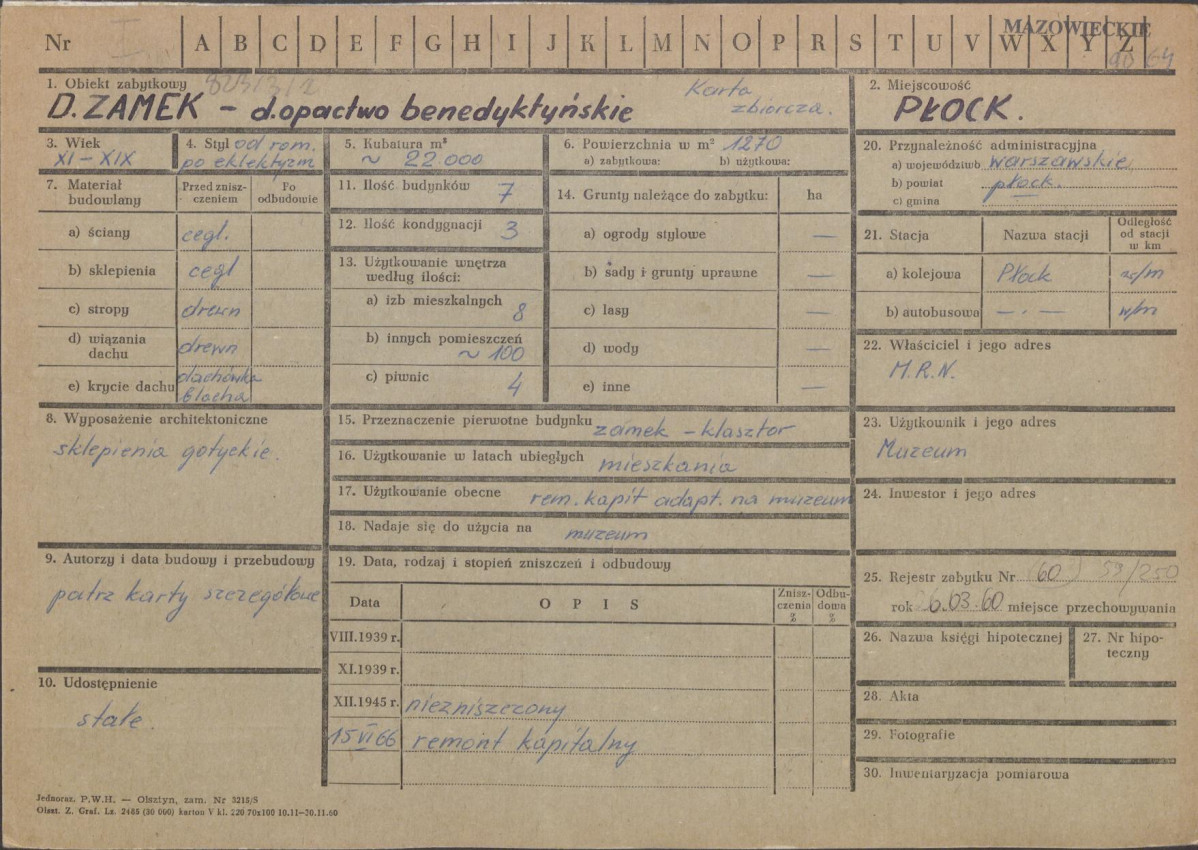 MAZOWIECKIE
Nr A B C D E F G H I J K L M N O P R S T U V W X Y Z
1. Obiekt zabytkowy
D. ZAMEK – d. opactwo benedyktyńskie
Karta
zbiorcza.
2. Miejscowość
PŁOCK.
3. Wiek
XI – XIX
4. Styl od rom.
po eklektyzm
5. Kubatura m³
~ 22.000
6. Powierzchnia w m² 1270
a) zabytkowa: b) użytkowa:
7. Materiał
budowlany
Przed znisz-
czeniem
Po
odbudowie
a) ściany cegl.
b) sklepienia cegl
c) stropy drewn
d) wiązania
dachu drewn
e) krycie dachu dachówka
blacha
8. Wyposażenie architektoniczne
sklepienia gotyckie.
9. Autorzy i data budowy i przebudowy
patrz karty szczegółowe
10. Udostępnienie
stałe.
11. Ilość budynków 7
12. Ilość kondygnacji 3
13. Użytkowanie wnętrza
według ilości:
a) izb mieszkalnych
8
b) innych pomieszczeń
~ 100
c) piwnic 4
14. Grunty należące do zabytku: ha
a) ogrody stylowe —
b) sady i grunty uprawne —
c) lasy —
d) wody —
e) inne —
15. Przeznaczenie pierwotne budynku zamek – klasztor
16. Użytkowanie w latach ubiegłych mieszkania
17. Użytkowanie obecne rem. kapit adapt. na muzeum
18. Nadaje się do użycia na muzeum
19. Data, rodzaj i stopień zniszczeń i odbudowy
Data OPIS Znisz-
czenia
% Odbu-
dowa
%
VIII.1939 r.
XI.1939 r.
XII.1945 r. niezniszczony
15 VI 66 remont kapitalny
20. Przynależność administracyjna
a) województwo warszawskie
b) powiat płock.
c) gmina
21. Stacja Nazwa stacji Odległość
od stacji
w km
a) kolejowa Płock w/m
b) autobusowa — . — w/m
22. Właściciel i jego adres
M.R.N.
23. Użytkownik i jego adres
Muzeum
24. Inwestor i jego adres
25. Rejestr zabytku Nr (60) 59/250
rok 26.03.60 miejsce przechowywania
26. Nazwa księgi hipotecznej
27. Nr hipo-
teczny
28. Akta
29. Fotografie
30. Inwentaryzacja pomiarowa
Jednoraz. P.W.H. — Olsztyn, zam. Nr 3215/S
Olszt. Z. Graf. Lz. 2465 (30 000) karton V kl. 220 70x100 10.11—20.11.60